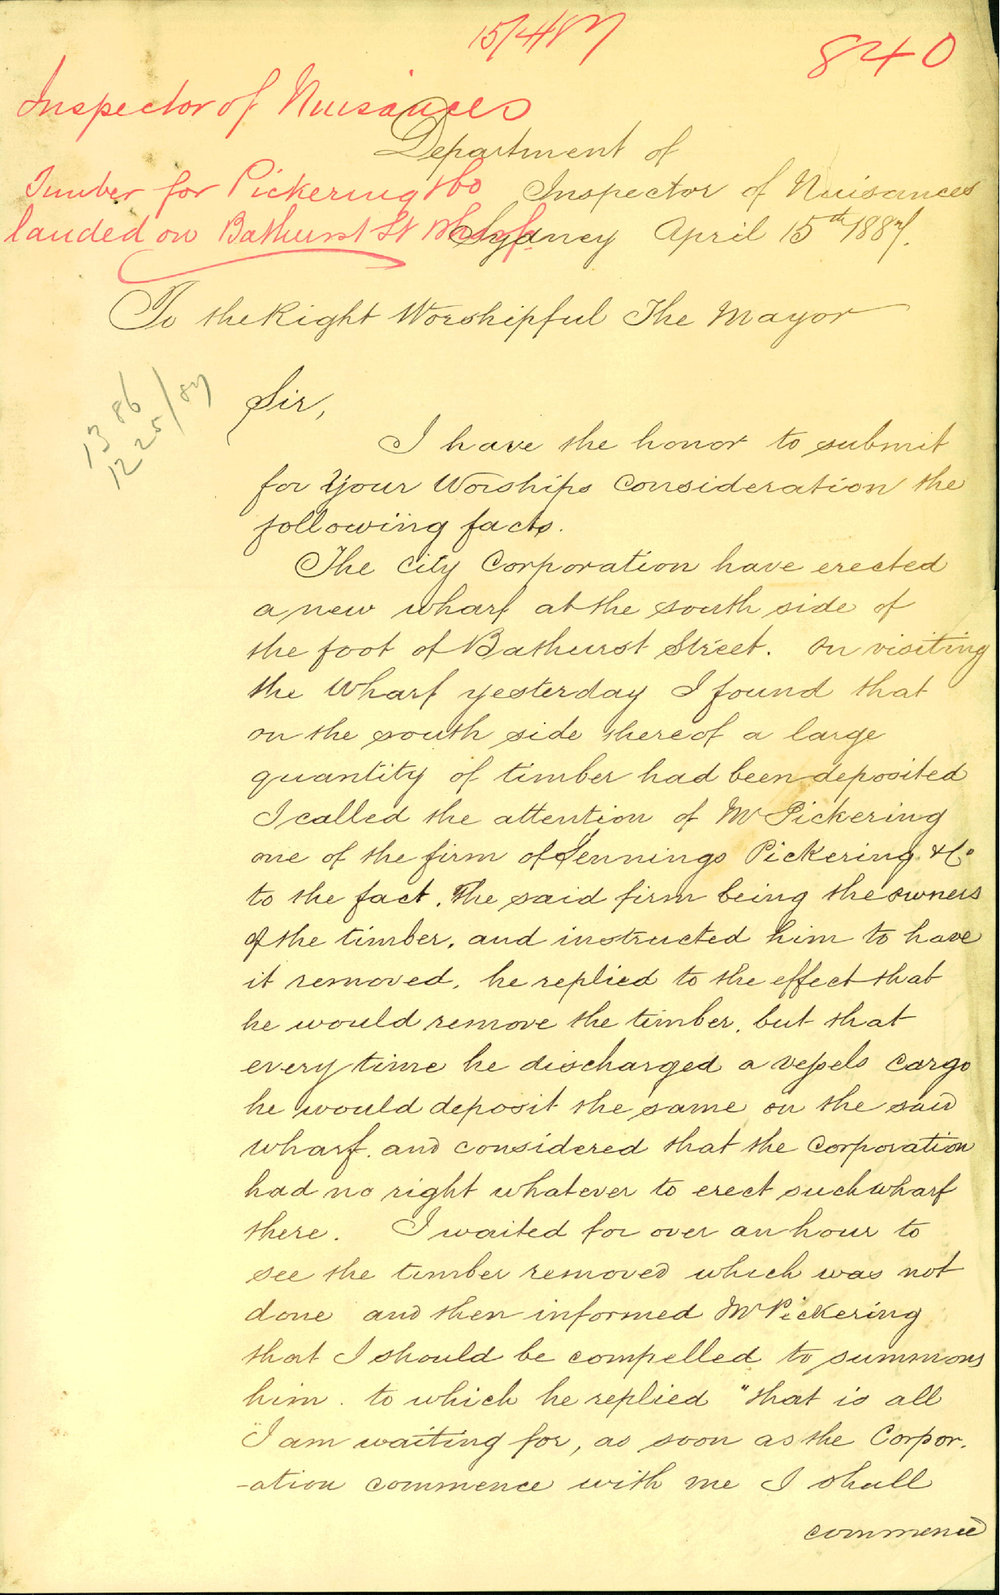 15/4/87
840
Inspector of Nuisances
Timber for Pickering & Co
landed on Bathurst St Wharf
Department of
Inspector of Nuisances
Sydney April 15th 1887.
To the Right Worshipful The Mayor
1386
1225/87
Sir,
I have the honor to submit
for Your Worships Consideration the
following facts.
The City Corporation have erected
a new wharf at the south side of
the foot of Bathurst Street. On visiting
the Wharf yesterday I found that
on the south side thereof a large
quantity of timber had been deposited
I called the attention of Mr Pickering
one of the firm of Jennings Pickering & Co
to the fact. The said firm being the owners
of the timber, and instructed him to have
it removed, he replied to the effect that
he would remove the timber, but that
every time he discharged a vessels Cargo
he would deposit the same on the said
wharf. and considered that the Corporation
had no right whatever to erect such wharf
there. I waited for over an hour to
see the timber removed which was not
done and then informed Mr Pickering
that I should be compelled to summons
him. to which he replied "that is all
"I am waiting for, as soon as the Corpor.
-ation commence with me I shall
commence